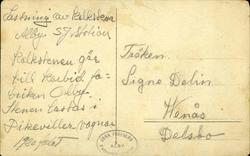 Lastning av kalksten
Alby. SJ. Station
Kalkstenen går
till karbid fa-
briken Alby.
Stenen lastas i
vagnar
Fröken
Signe Delin
Wenås
Delsbo